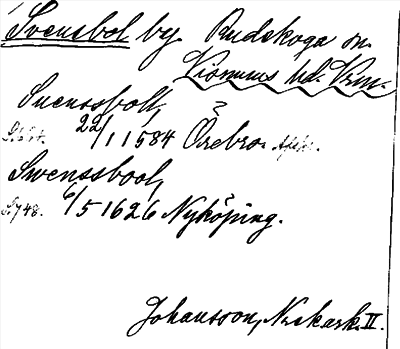 Svensbol by Rudskoga sn.
Visnums hd. Vrm.
Suenssboll,
22/1 1584 Örebro. ?
Swenssbool,
S. 748. 6/5 1626 Nyköping.
Johansson, Nrekark. II.